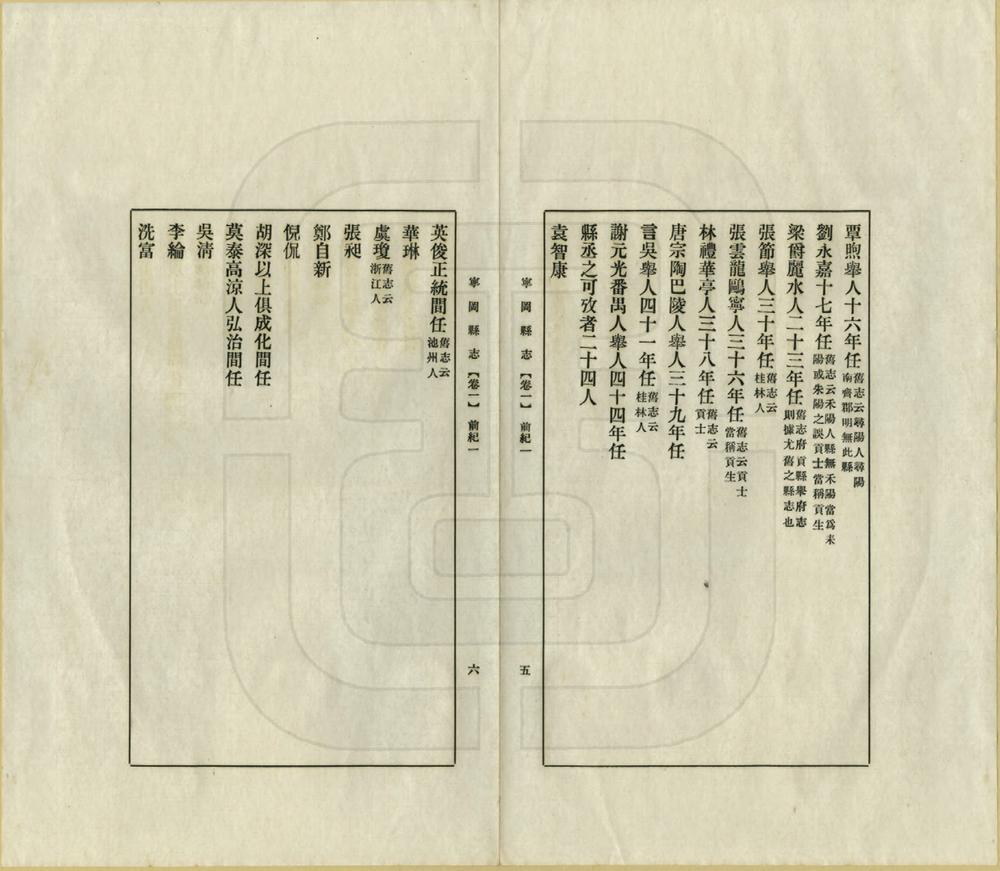 覃煦舉人十六年任舊志云尋陽人尋陽南齊郡明無此縣
劉永嘉十七年任舊志云禾陽人縣無禾陽當爲耒陽或朱陽之誤貢士當稱貢生
梁爵麗水人二十三年任舊志府貢縣舉府志則據尤舊之縣志也
張節舉人三十年任舊志云桂林人
張雲龍鷗寧人三十六年任舊志云貢士當稱貢生
林禮華亭人三十八年任舊志云貢士
唐宗陶巴陵人舉人三十九年任
言吳舉人四十一年任舊志云桂林人
謝元光番禺人舉人四十四年任
縣丞之可攷者二十四人
袁智康
寧岡縣志【卷一】前紀一 五
寧岡縣志【卷一】前紀一 六
英俊正統間任舊志云池州人
華琳
虞瓊舊志云浙江人
張昶
鄭自新
倪侃
胡深以上俱成化間任
莫泰高涼人弘治間任
吳淸
李綸
洗富